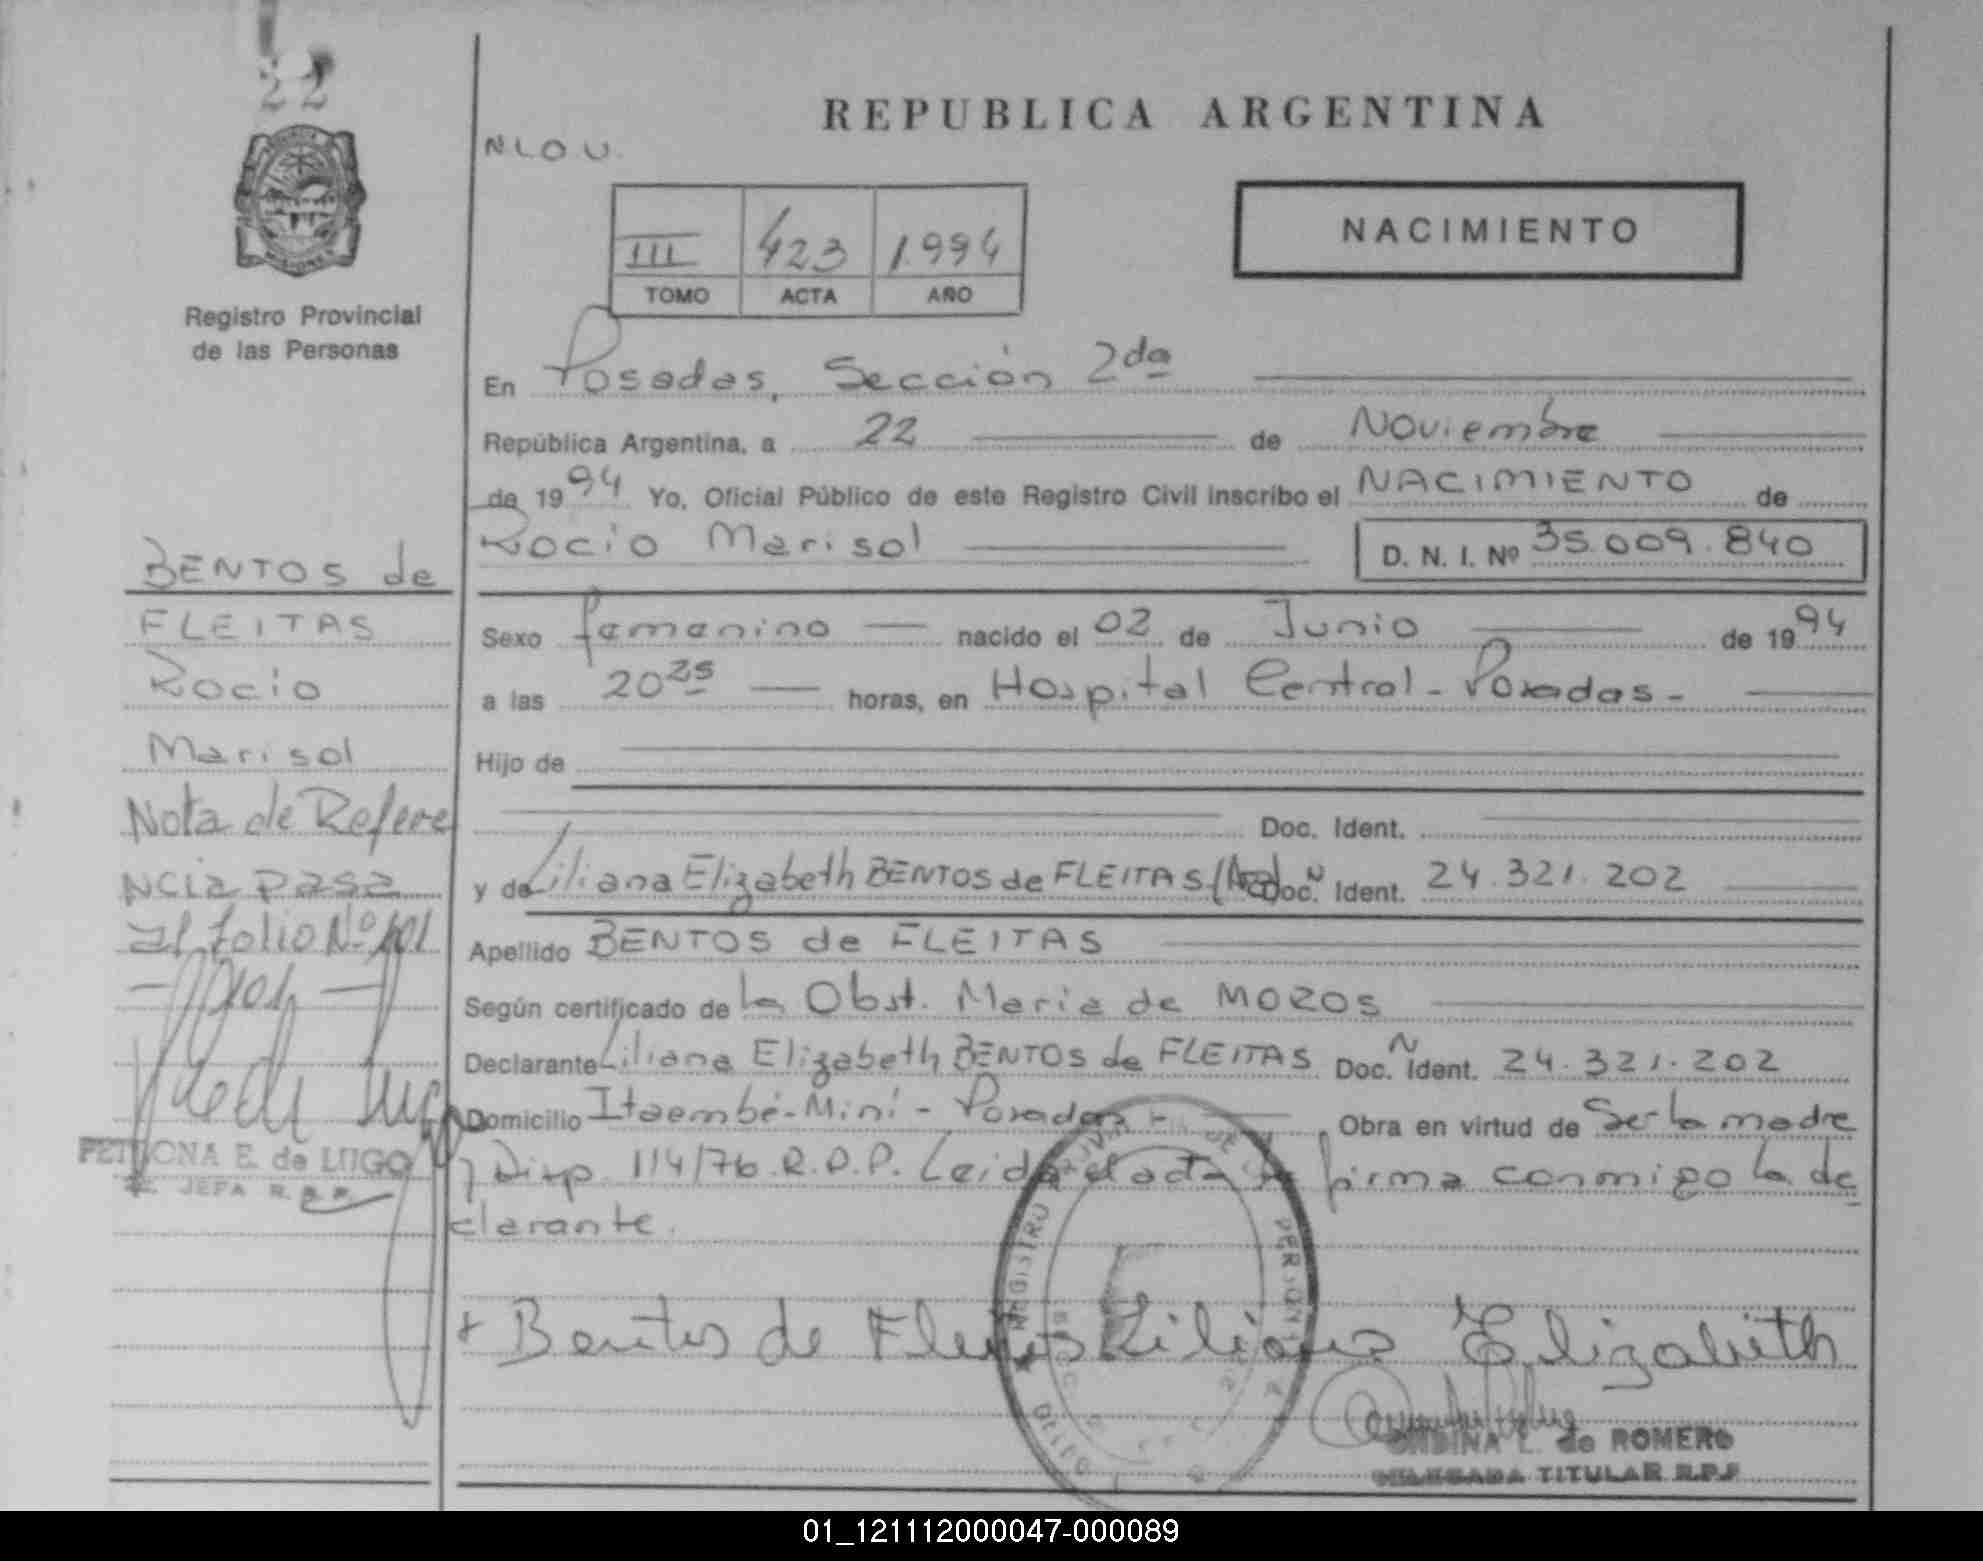 22
REPUBLICA ARGENTINA
N L O U.
NACIMIENTO
III 423 1994
TOMO ACTA AÑO
Registro Provincial
de las Personas
En Posadas, Sección 2da
República Argentina, a 22 de Noviembre
de 1994 Yo, Oficial Público de este Registro Civil inscribo el NACIMIENTO de
Rocio Marisol D. N. I. Nº 35.009.840
Sexo femenino nacido el 02 de Junio de 1994
a las 20 25 horas, en Hospital Central - Posadas -
Hijo de
Doc. Ident.
y de Liliana Elizabeth BENTOS de FLEITAS Doc. N Ident. 24.321.202
Apellido BENTOS de FLEITAS
Según certificado de la Obst. Maria de MOZOS
Declarante Liliana Elizabeth BENTOS de FLEITAS Doc. N Ident. 24.321.202
Domicilio Itaembé-Miní - Posadas - Obra en virtud de Ser la madre
y Disp. 114/76 R.P.P. Leida el acta la firma conmigo la de
clarante.
+ Bentos de Fleitas Liliana Elizabeth
BENTOS de
FLEITAS
Rocio
Marisol
Nota de Refere
ncia pasa
al folio Nº 101
PETRONA E. de LUGO
JEFA R.P.P.
REGISTRO
ONDINA L. de ROMERO
DELEGADA TITULAR R.P.P.
01_121112000047-000089